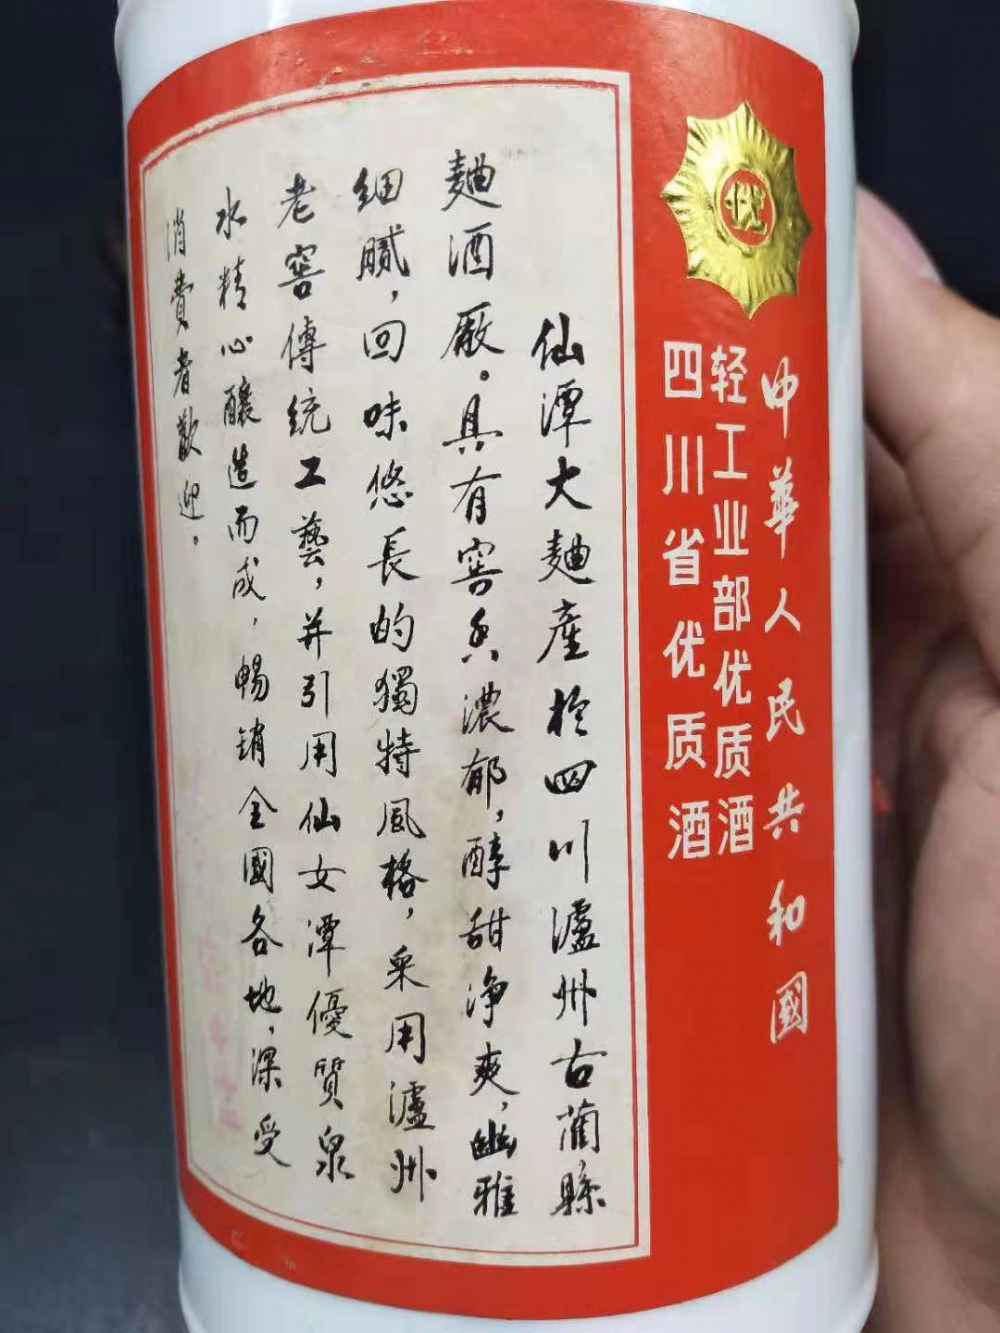 优
中華人民共和國
轻工业部优质酒
四川省优质酒
仙潭大麯産於四川瀘州古藺縣
麯酒厰。具有窖香濃郁,醇甜净爽,幽雅
细膩,回味悠長的獨特風格,采用瀘州
老窖傳統工藝,并引用仙女潭優質泉
水精心釀造而成,暢銷全國各地,深受
消費者歡迎。